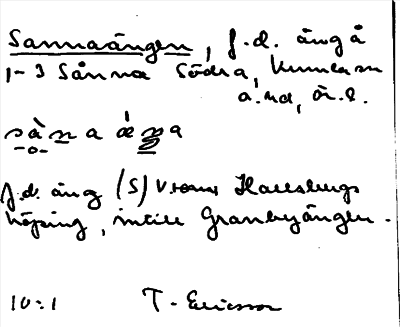 Sannaängen, f.d. äng å
1-3 Sånna Södra, Kumla sn
a. nd, Ör. l.
sàna æ´ŋa
f.d. äng (S) Hallsbergs
köping, intill Granbyängen.
10:1 T. Ericsson